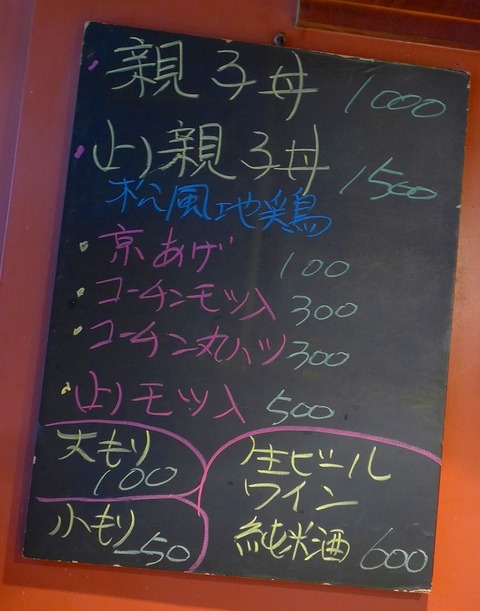 親子丼 1000
より親子丼 1500
松風地鶏
・京あげ 100
・コーチンモツ入 300
・コーチン丸ハツ 300
・よりモツ入 500
大もり
100
小もり
-50
生ビール
ワイン
純米酒 600